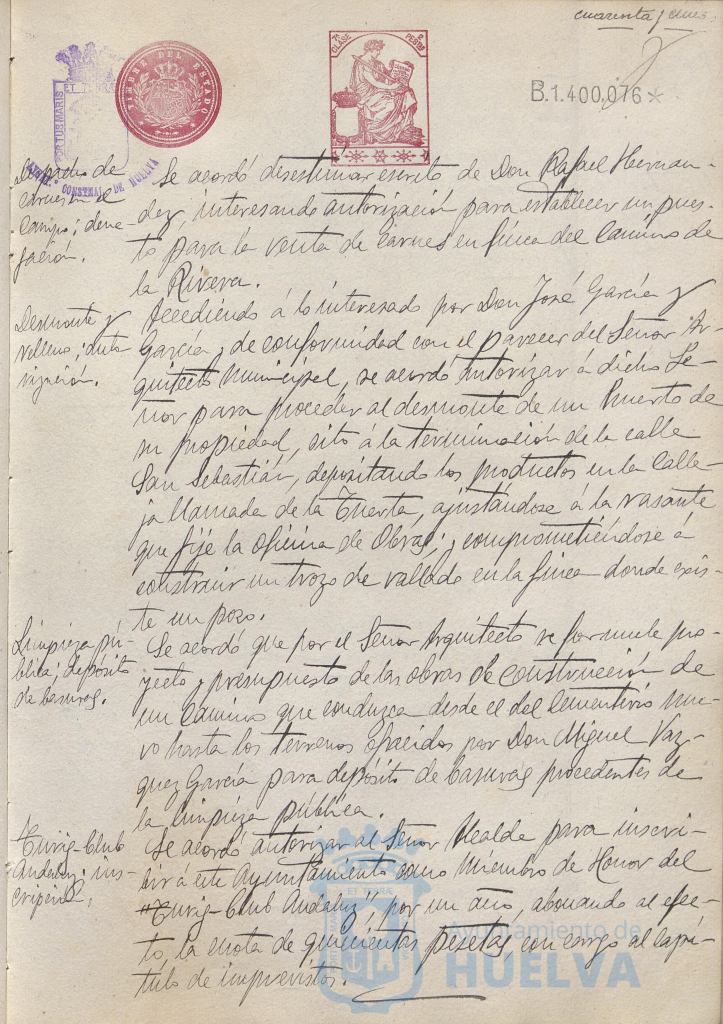 cuarenta y cinco
TIMBRE DEL ESTADO
1ª CLASE PESETAS
ET TERRÆ
PORTUS MARIS
CONSTNAL. DE HUELVA
B.1.400,076
Despacho de
carnes en el
campo; dene-
gación.
Se acordó desestimar escrito de Don Rafael Hernan-
dez, interesando autorización para establecer un pues-
to para la venta de carnes en finca del Camino de
la Rivera.
Desmonte y
relleno; auto-
rización.
Accediendo á lo interesado por Don José García y
García, y de conformidad con el parecer del Señor Ar-
quitecto Municipal, se acordó autorizar á dicho Se-
ñor para proceder al desmonte de un Huerto de
su propiedad, sito á la terminación de la calle
San Sebastián, depositando los productos en la Calle-
ja llamada de la Tuerta, ajustandose á la rasante
que fije la oficina de Obras; y comprometiéndose á
construir un trozo de vallado en la finca donde exis-
te un pozo.
Limpieza pú-
blica; depósito
de basuras.
Se acordó que por el Señor Arquitecto se formule pro-
yecto y presupuesto de las obras de construcción de
un camino que conduzca desde el del Cementerio nue-
vo hasta los terrenos ofrecidos por Don Miguel Vaz-
quez García para depósito de basuras procedentes de
la limpieza pública.
Turig-Club
Andaluz; ins-
cripción.
Se acordó autorizar al Señor Alcalde para inscri-
bir á este Ayuntamiento como Miembro de Honor del
"Turig-Club Andaluz", por un año, abonando al efec-
to, la cuota de quinientas pesetas, con cargo al capí-
tulo de imprevistos.
Ayuntamiento de
HUELVA